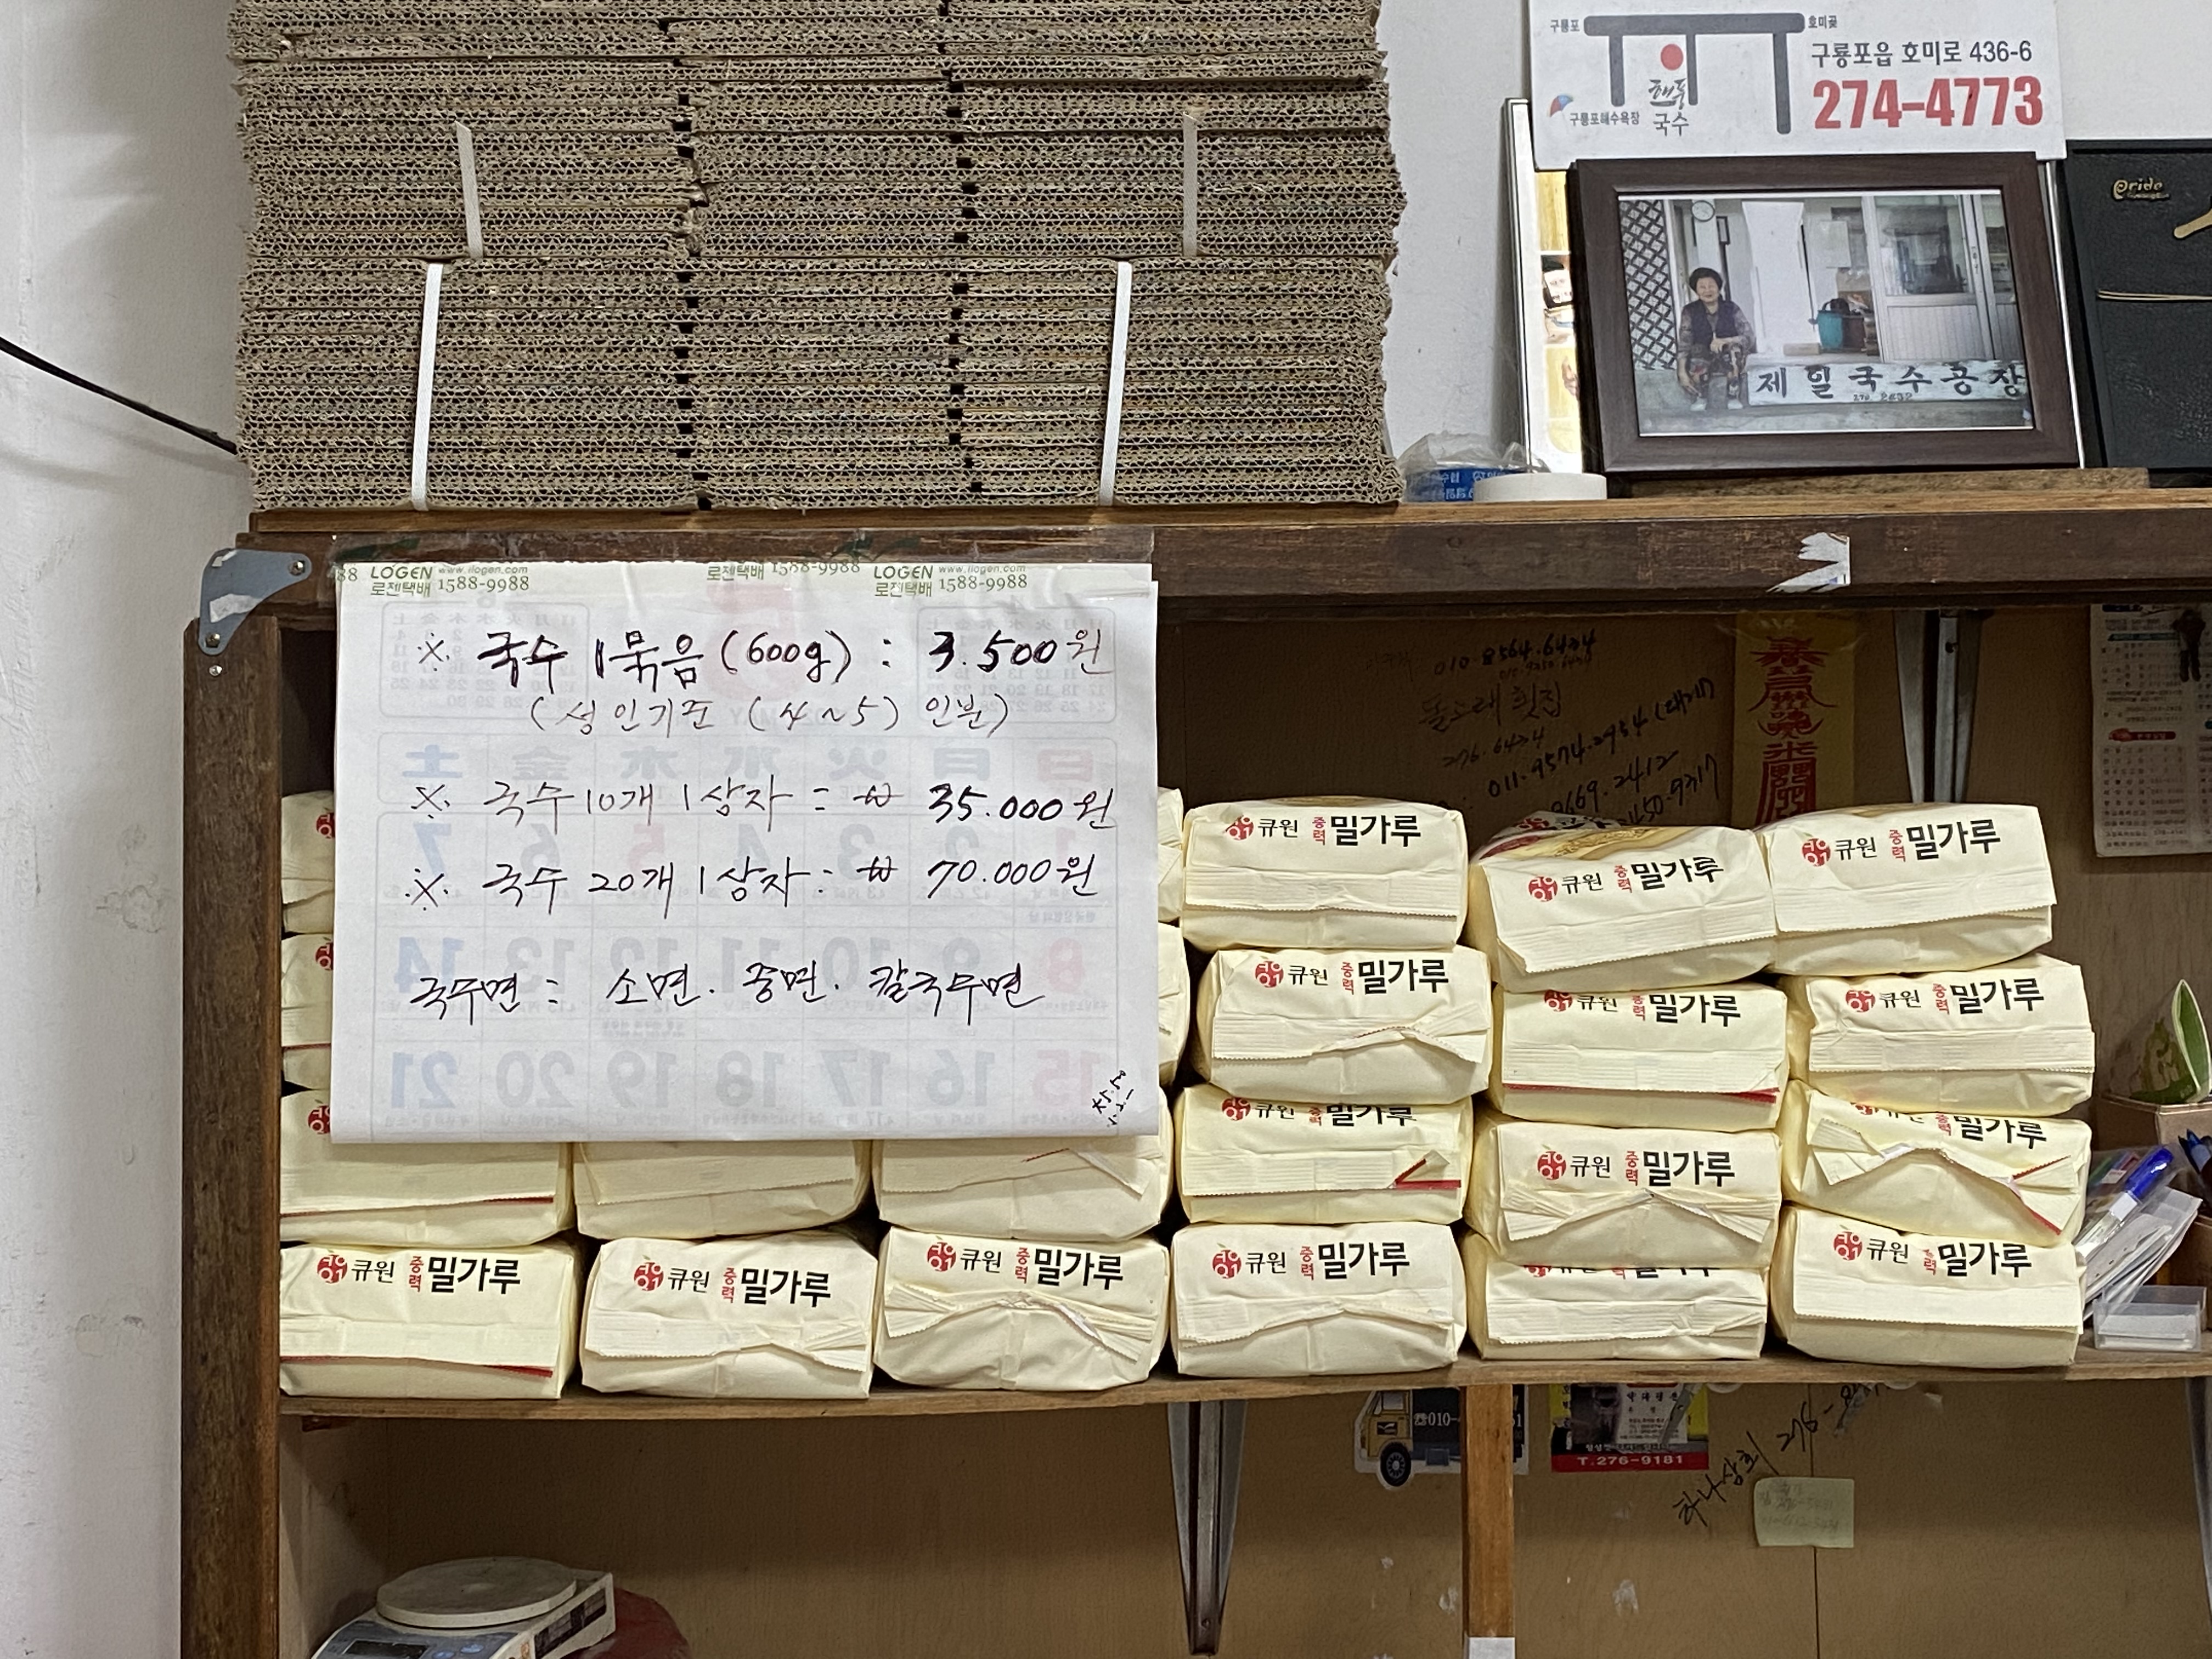 구룡포
호미곶
구룡포읍 호미로 436-6
274-4773
해풍
국수
구룡포해수욕장
Pride
제일국수공장
88 LOGEN www.ilogen.com
로젠택배 1588-9988
로젠택배 1588-9988
LOGEN www.ilogen.com
로젠택배 1588-9988
※ 국수 1묶음(600g) : 3.500원
(성인기준 (4~5) 인분)
※ 국수 10개 1상자 : ₩ 35.000원
※ 국수 20개 1상자 : ₩ 70.000원
국수면 : 소면. 중면. 칼국수면
010.8564.6434
돌고래 횟집
276.6434
011.9574.2954 (대게)
9669.2412
큐원 중력 밀가루
큐원 중력 밀가루
큐원 중력 밀가루
큐원 중력 밀가루
큐원 중력 밀가루
큐원 중력 밀가루
큐원 중력 밀가루
큐원 중력 밀가루
중력 밀가루
큐원 중력 밀가루
큐원 중력 밀가루
큐원 중력 밀가루
큐원 중력 밀가루
큐원 중력 밀가루
T.276-9181
하나상회 276-